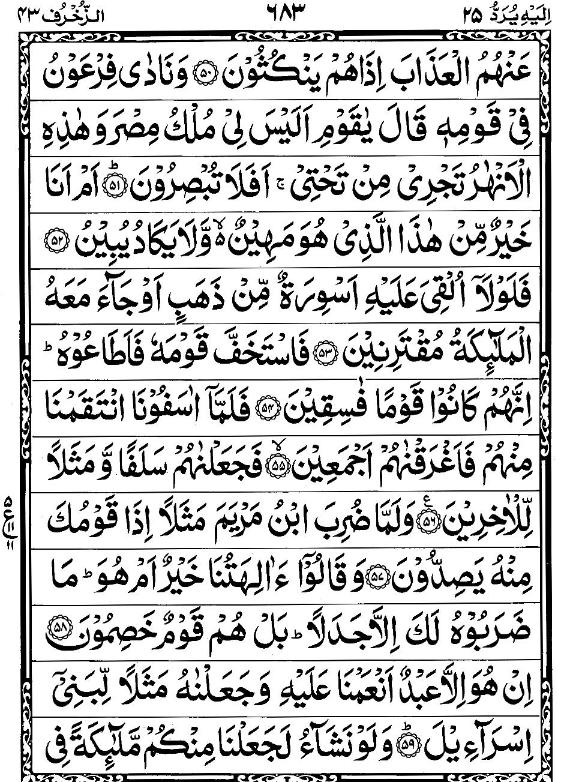 اِلَيْهِ يُرَدُّ ٢٥ ٦٨٣ الزُّخْرُف ٤٣
عَنْهُمُ الْعَذَابَ اِذَاهُمْ يَنْكُثُوْنَ ۝٥٠ وَنَادٰى فِرْعَوْنُ
فِىْ قَوْمِهٖ قَالَ يٰقَوْمِ اَلَيْسَ لِىْ مُلْكُ مِصْرَ وَهٰذِهِ
الْاَنْهٰرُ تَجْرِىْ مِنْ تَحْتِىْ ۚ اَفَلَا تُبْصِرُوْنَ ؕ۝٥١ اَمْ اَنَا
خَيْرٌ مِّنْ هٰذَا الَّذِىْ هُوَ مَهِيْنٌ ۙ وَّلَا يَكَادُ يُبِيْنُ ۝٥٢
فَلَوْلَاۤ اُلْقِىَ عَلَيْهِ اَسْوِرَةٌ مِّنْ ذَهَبٍ اَوْ جَآءَ مَعَهُ
الْمَلٰٓئِكَةُ مُقْتَرِنِيْنَ ۝٥٣ فَاسْتَخَفَّ قَوْمَهٗ فَاَطَاعُوْهُ ؕ
اِنَّهُمْ كَانُوْا قَوْمًا فٰسِقِيْنَ ۝٥٤ فَلَمَّاۤ اٰسَفُوْنَا انْتَقَمْنَا
مِنْهُمْ فَاَغْرَقْنٰهُمْ اَجْمَعِيْنَ ۙ۝٥٥ فَجَعَلْنٰهُمْ سَلَفًا وَّمَثَلًا
لِّلْاٰخِرِيْنَ ۝٥٦ وَلَمَّا ضُرِبَ ابْنُ مَرْيَمَ مَثَلًا اِذَا قَوْمُكَ
٥ ع ١١ ١١
مِنْهُ يَصِدُّوْنَ ۝٥٧ وَقَالُوْۤا ءَاٰلِهَتُنَا خَيْرٌ اَمْ هُوَ ؕ مَا
ضَرَبُوْهُ لَكَ اِلَّا جَدَلًا ؕ بَلْ هُمْ قَوْمٌ خَصِمُوْنَ ۝٥٨
اِنْ هُوَ اِلَّا عَبْدٌ اَنْعَمْنَا عَلَيْهِ وَجَعَلْنٰهُ مَثَلًا لِّبَنِىْۤ
اِسْرَآءِيْلَ ؕ۝٥٩ وَلَوْ نَشَآءُ لَجَعَلْنَا مِنْكُمْ مَّلٰٓئِكَةً فِى